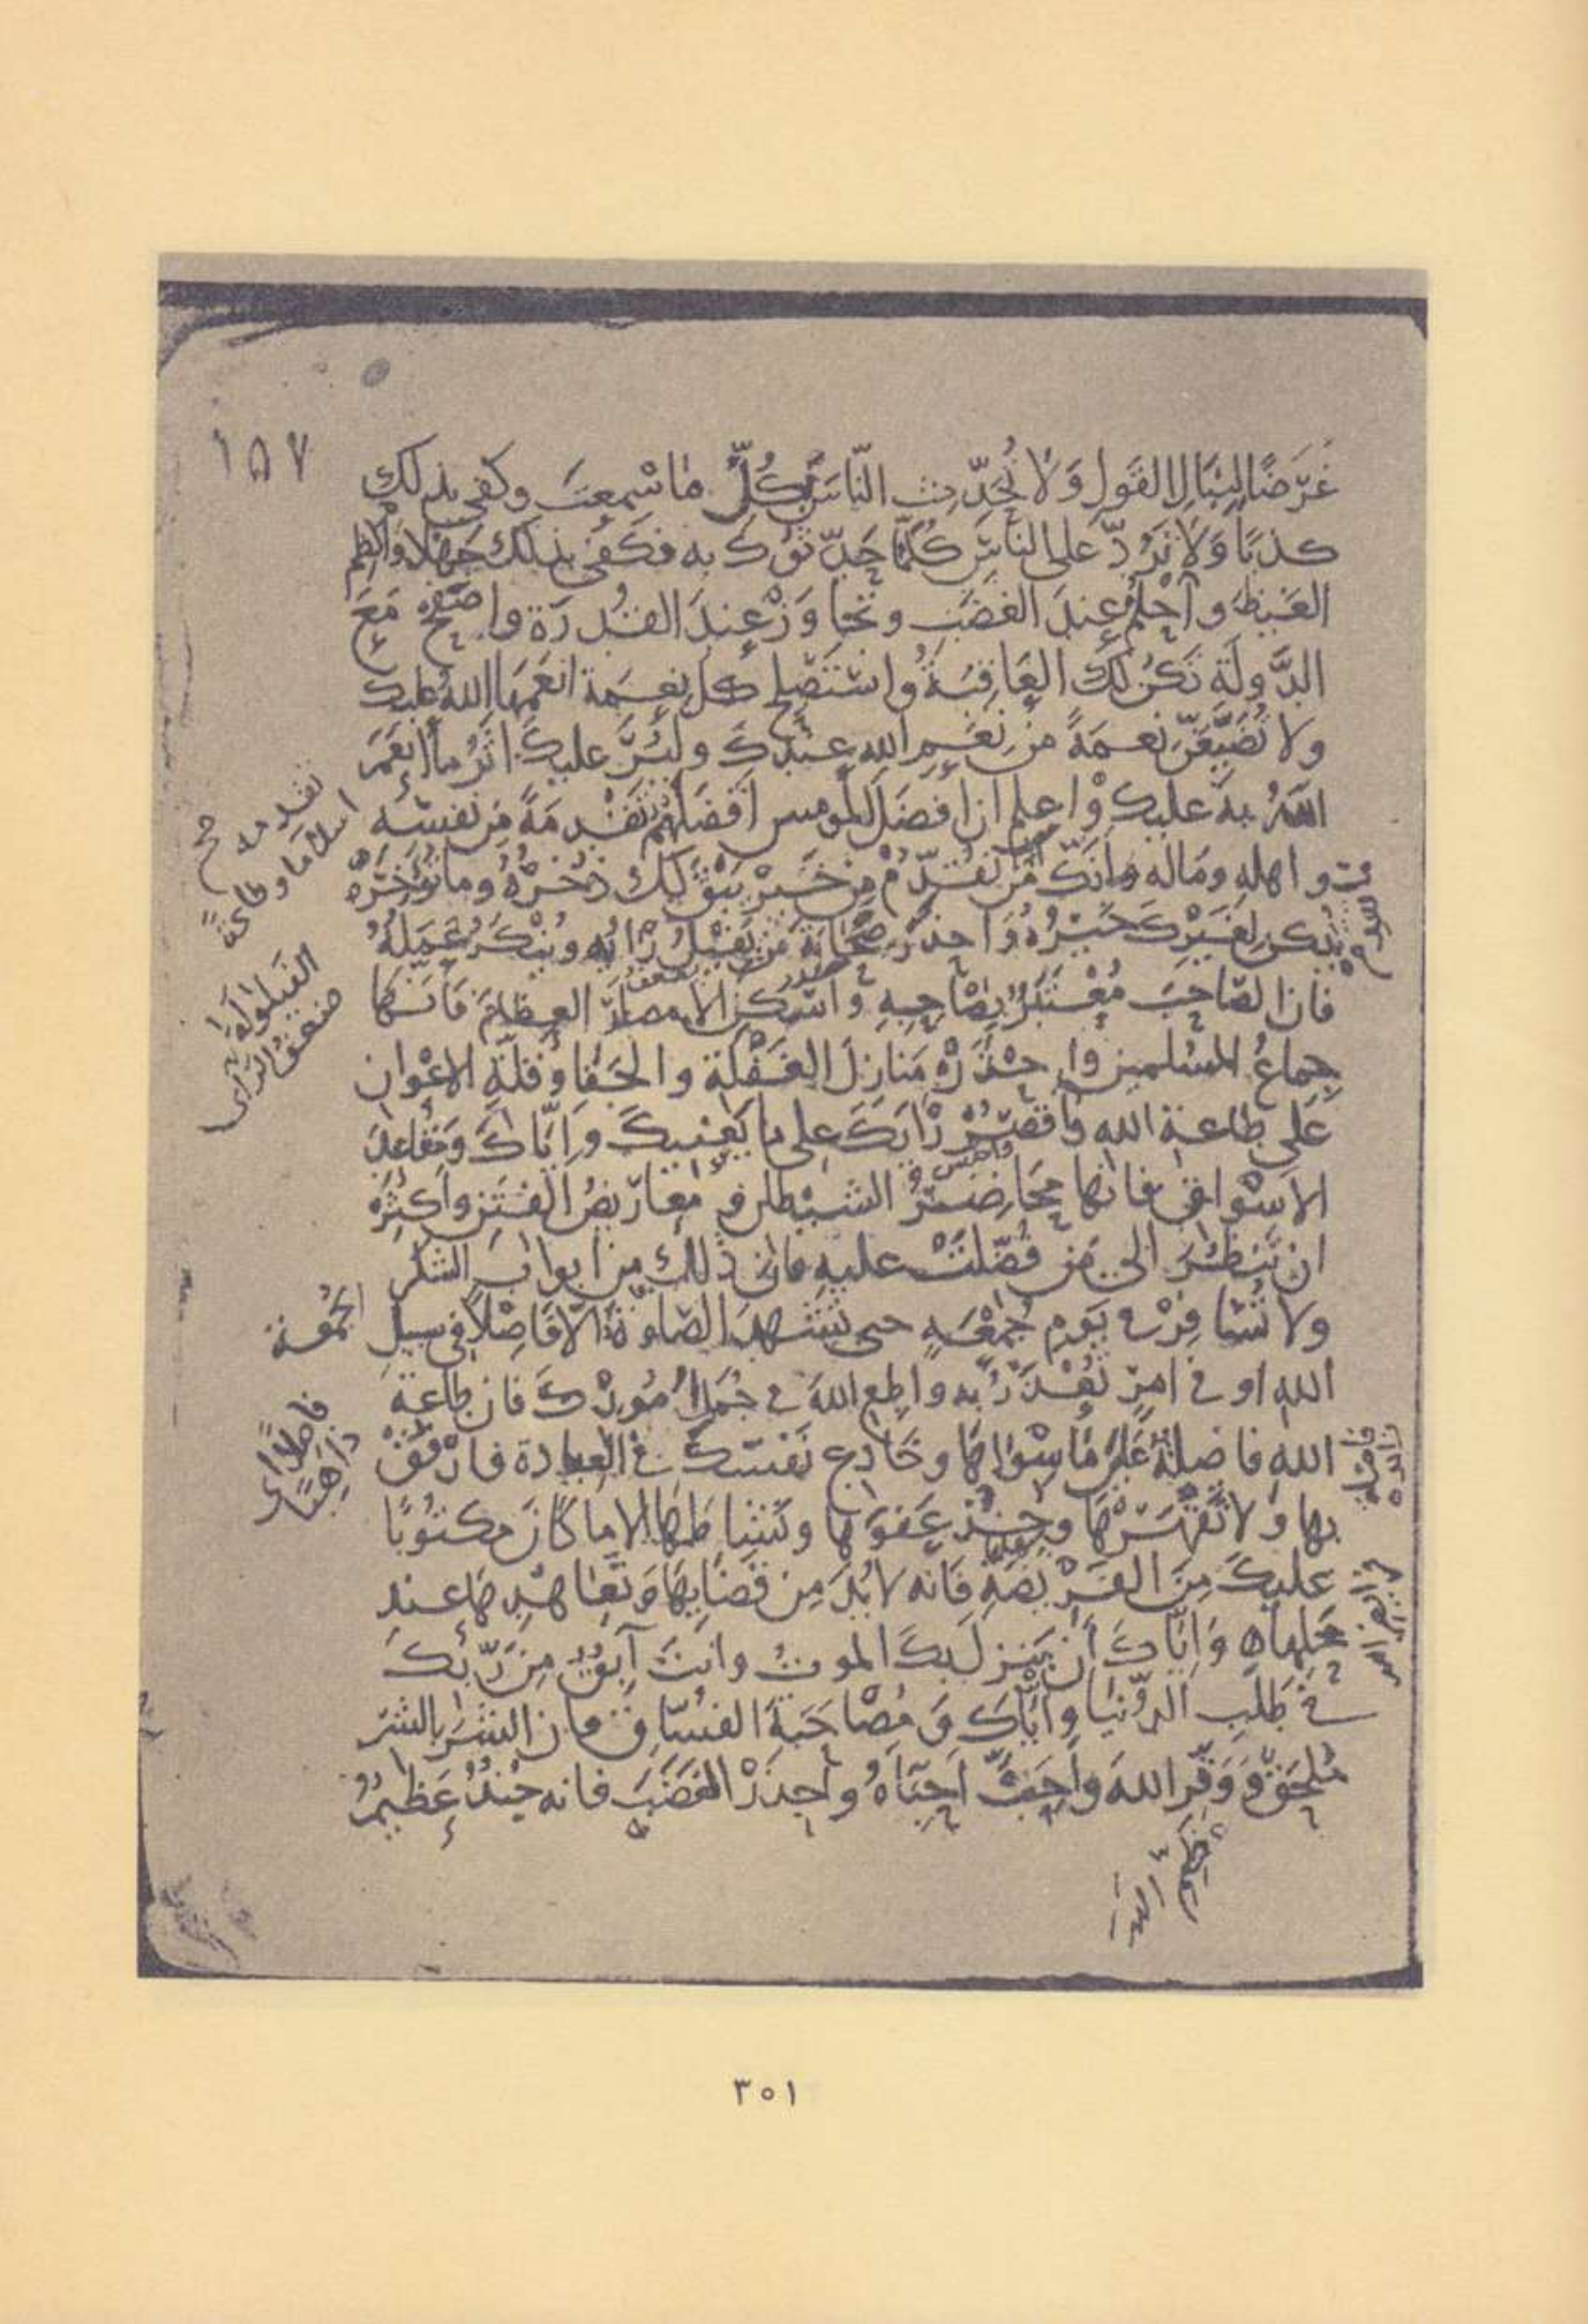 ١٥٧
غَرَضًا لِنِبَالِ القَولِ وَلَا تُحَدِّث النَّاسَ بِكُلِّ مَا سَمِعتَ وكفى بذلك
كذبًا وَلَا تَرُدَّ على النَّاسِ كُلَّمَا حَدَّثوكَ به فكَفَى بذلك جَهْلًا وَاكْظِم
الغيظَ واحْلُمْ عِندَ الغَضَبِ وتَجَاوَزْ عِندَ القُدرَةِ واصفَحْ مَعَ
الدَّولَةِ تَكُنْ لَكَ العَاقِبَةُ واستَصْلِحْ كلَّ نِعمَةٍ انعَمَهَا اللهُ عليك
ولا تُضَيِّعَنَّ نعمَةً مِن نِعَمِ اللهِ عِندَكَ ولْيُرَ عليكَ اثَرُ ما انعَمَ
اللهُ به عليك واعلم ان افضَلَ المومنين افضَلُهُم تَقْدِمَةً مِن نفسِه
واهلِهِ ومَالِه وانَّكَ ما تُقَدِّمْ مِن خَيْرٍ يَبْقَ لكَ ذُخْرُهُ وما تُؤَخِّرْهُ
يكن لغَيْرِكَ خَيْرُهُ وَاحذَرْ صَحَابَةَ مَن يَفِيلُ رَأيُه ويُنْكَرُ عَمَلُهُ
فان الصّاحبَ مُعْتَبَرٌ بصَاحِبِهِ واسْكُنِ الامصَارَ العِظَامَ فَانَّهَا
جِماعُ المسلمين واحْذَرْ مَنَازِلَ الغَفْلَةِ والجَفَا وقِلَّةِ الاعْوانِ
عَلَى طاعةِ الله واقصُرْ رَايَكَ على ما يَعنيكَ وَايَّاكَ وَمَقَاعِدَ
الاسْواقِ فانها مَحَاضِرُ الشيْطان ومَعَارِيضُ الفِتَنِ واكثِرْ
ان تَنظُرَ الى مَن فُضِّلتَ عليهِ فان ذلك مِن ابوابِ الشكر
ولا تُسَافِرْ في يَومِ جُمْعَةٍ حتى تَشهَدَ الصَّلوةَ الّا فَاصِلًا في سبيلِ
اللهِ او في امرٍ تُعْذَرُ به واطعِ اللهَ في جُمَلِ امُورِكَ فان طاعَةَ
اللهِ فاضِلةٌ عَلَى مَا سِوَاهَا وخَادِع نَفْسَكَ في العبادة وارْفُقْ
بها وَلا تَقْهَرْهَا وخُذْ عَفوَهَا ونَشَاطَهَا الا ما كَانَ مكتُوبًا
عليكَ مِنَ الفَرِيضَةِ فَانه لا بُدَّ مِن قَضَائِهَا وَتَعَاهُدِهَا عِندَ
مَحَلِّهَا وَايَّاكَ أن يَنزِلَ بكَ الموتُ وانتَ آبِقٌ مِن رَبِّكَ
في طَلَبِ الدُّنيَا وايَّاكَ وَمُصَاحَبَةَ الفُسَّاقِ فان الشرَّ بالشرّ
مُلحَقٌ وَوَقِّرِ اللهَ واَحبِبْ اَحِبَّاءَهُ واحذَرْ الغَضَبَ فانه جُنْدٌ عَظيمٌ
تقدمه صح
اسلامًا وطاعةً
الفيلولة
ضعفُ الرَّأى
الجُمعة
فاصلًا اى
ذاهبًا
٣٥١